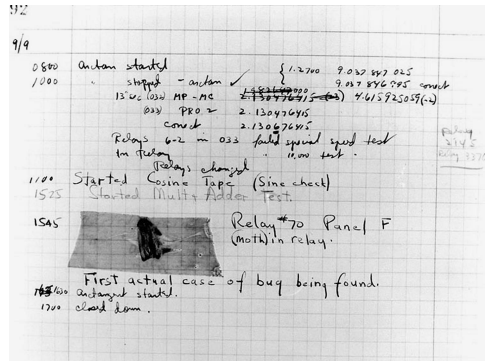 92
9/9
0800 Antan started
1000 " stopped - antan ✓ { 1.2700 9.037 847 025
9.037 846 995 conect
13"uc (032) MP-MC 2.130476415 (-3) 4.615925059(-2)
(033) PRO 2 2.130476415
conect 2.130676415
Relays 6-2 in 033 failed special speed test
in Relay " 10,000 test .
Relays changed
1100 Started Cosine Tape (Sine check)
1525 Started Mult + Adder Test.
1545 Relay #70 Panel F
(Moth) in relay.
First actual case of bug being found.
1630 antangent started.
1700 closed down.
Relay
2145
Relay 3370